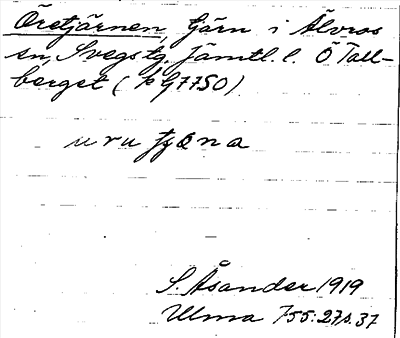 Öretjärnen, tjärn i Älvros
sn, Svegs tg, Jämtl. l. Ö Tall-
berget (k G7750)
uru tjana
S. Åsander 1919
Ulma 755:27, s. 37